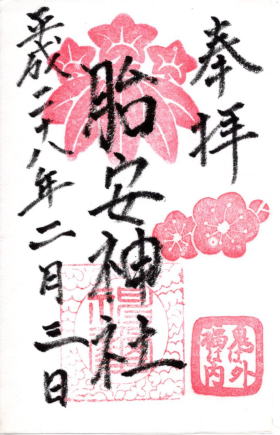 奉拝
胎安神社
平成二十八年二月三日
鬼は外
福は内